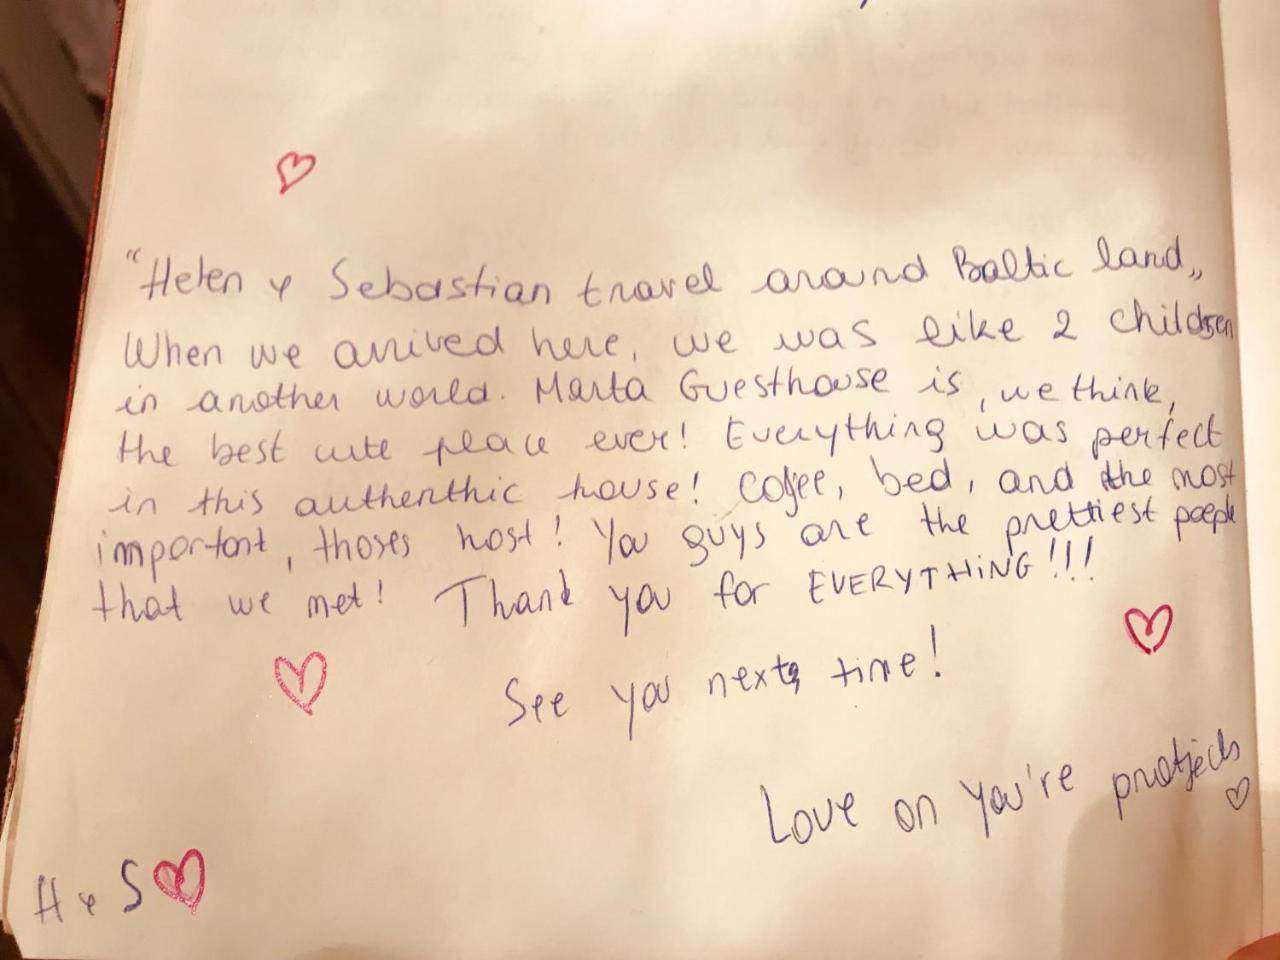 "Helen & Sebastian travel around Baltic land„
When we arrived here, we was like 2 children
in another world. Marta Guesthouse is, we think,
the best cute place ever! Everything was perfect
in this authenthic house! Coffee, bed, and the most
important, thoses host! You guys are the prettiest people
that we met! Thank you for EVERYTHING!!!
See you next time!
Love on you're protjects
H & S